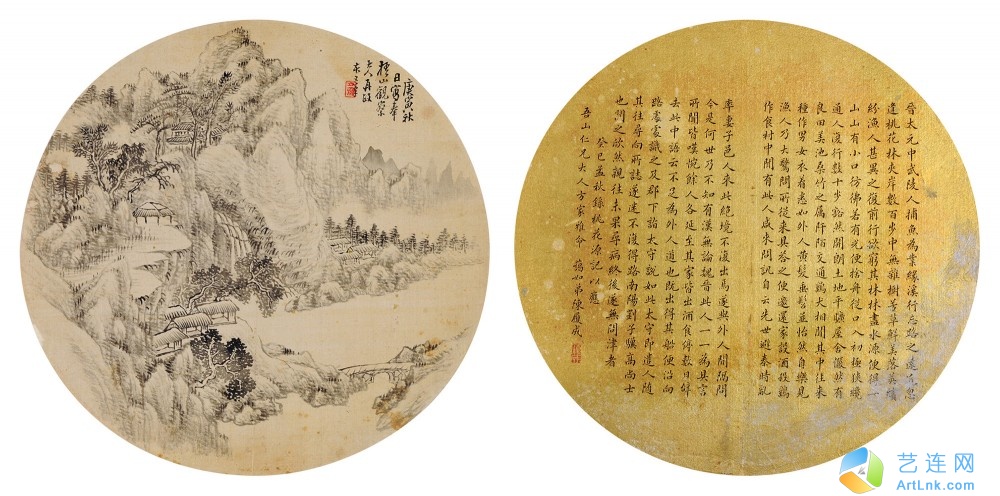 庚寅秋
日寫奉
穉山觀察
大人再政
晉太元中武陵人捕魚為業緣溪行忘路之遠近忽
逢桃花林夾岸數百步中無雜樹芳草鮮美落英繽
紛漁人甚異之復前行欲窮其林林盡水源便得一
山山有小口彷彿若有光便捨舟從口入初極狹纔
通人復行數十步豁然開朗土地平曠屋舍儼然有
良田美池桑竹之屬阡陌交通鷄犬相聞其中往來
種作男女衣着悉如外人黃髮垂髫並怡然自樂見
漁人乃大驚問所從來具答之便邀還家設酒殺鷄
作食村中聞有此人咸來問訊自云先世避秦時亂
率妻子邑人來此絕境不復出焉遂與外人間隔問
今是何世乃不知有漢無論魏晉此人一一為具言
所聞皆嘆惋餘人各延至其家皆出酒食停數日辭
去此中語云不足為外人道也既出得其船便沿向
路處處識之及郡下詣太守說如此太守即遣人隨
其往尋向所誌遂迷不復得路南陽劉子驥高尚士
也聞之欣然親往未果尋病終後遂無問津者
癸巳孟秋錄桃花源記以應
吾山仁兄大人方家雅命 藹如弟陳履
艺连网
ArtLnk.com